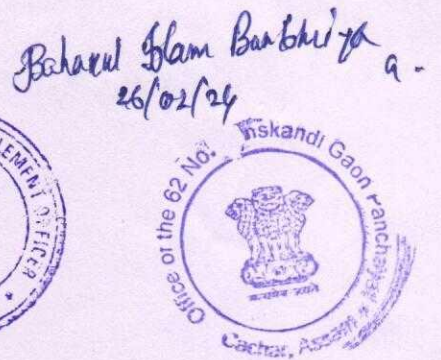 Baharul Islam Barbhuiya
26/02/24
EMENT OFFICER
Office of the 62 No. nskandi Gaon Panchayat
सत्यमेव जयते
Cachar, Assam